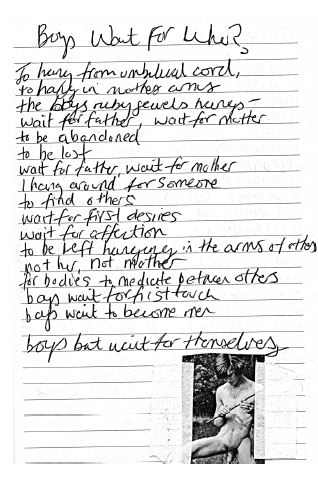 Boys Wait For Who?
To hang from umbilical cord,
to hang in mothers arms
the boys ruby jewels hangs -
wait for father, wait for mother
to be abandoned
to be lost
wait for father, wait for mother
I hang around for someone
to find others
wait for first desires
wait for affection
to be left hanging in the arms of others
not her, not mother
for bodies to mediate between others
boys wait for first touch
boys wait to become men
boys but wait for themselves